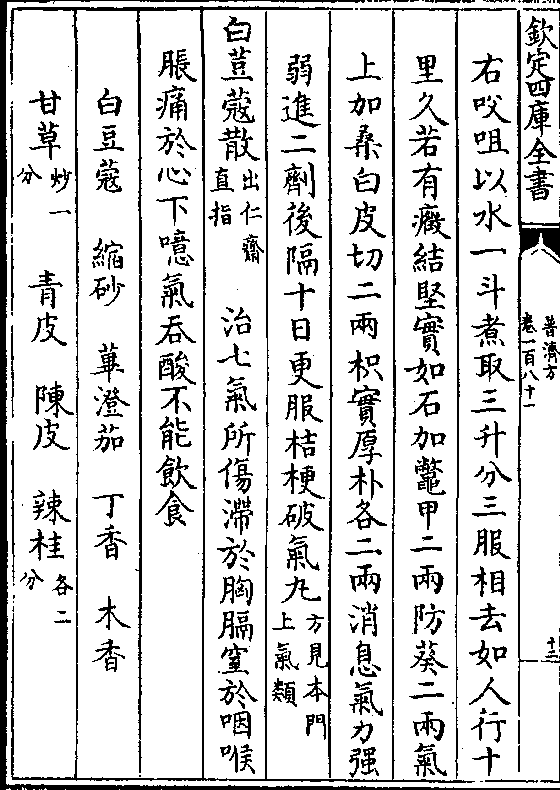 欽定四庫全書
普濟方
卷一百八十一
十三
右㕮咀以水一斗煮取三升分三服相去如人行十
里久若有癥結堅實如石加鼈甲二兩防葵二兩氣
上加桑白皮切二兩枳實厚朴各二兩消息氣力强
弱進二劑後隔十日更服桔梗破氣丸方見本門上氣類
白荳蔻散出仁齋直指 治七氣所傷滯於胸膈窒於咽喉
脹痛於心下噫氣吞酸不能飲食
白豆蔻 縮砂 蓽澄茄 丁香 木香
甘草炒一分 青皮 陳皮 辣桂各二分